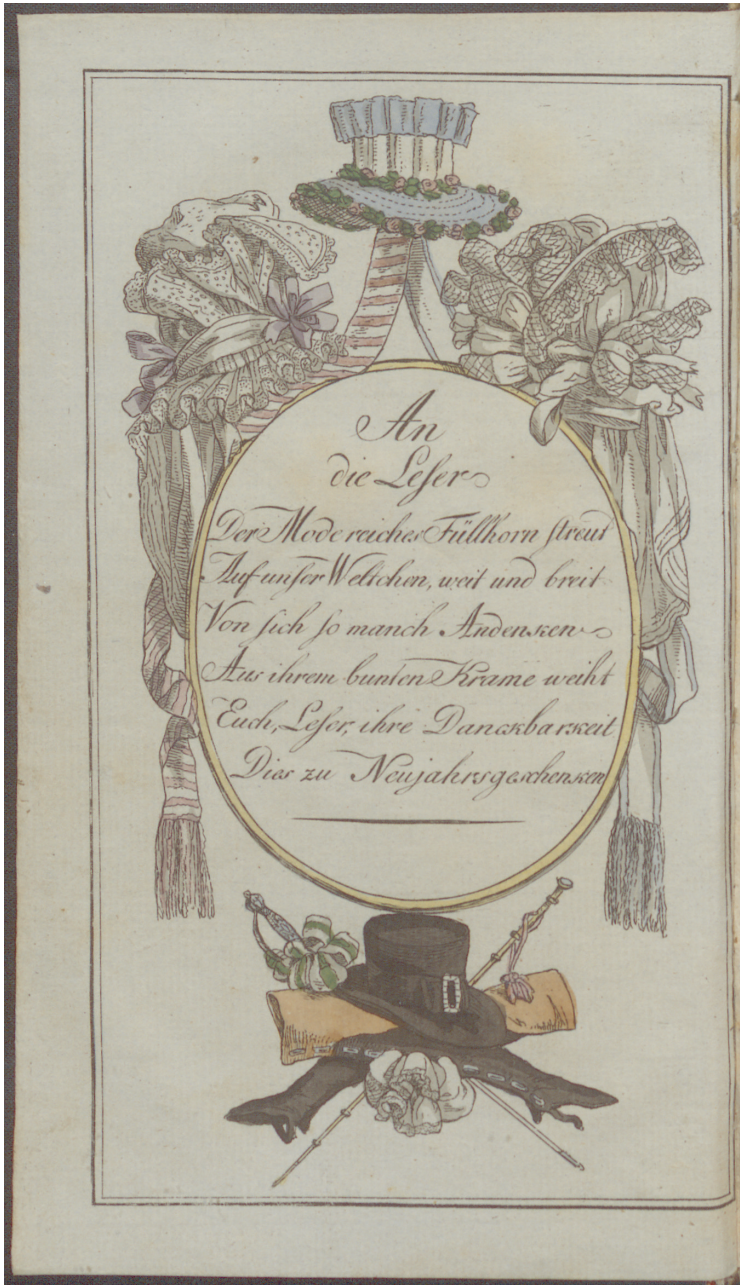 An
die Leser
Der Mode reiches Füllhorn streut
Auf unser Weltchen, weit und breit
Von sich so manch Andenken
Aus ihrem bunten Krame weiht
Euch, Leser, ihre Danckbarkeit
Dies zu Neujahrsgeschenken